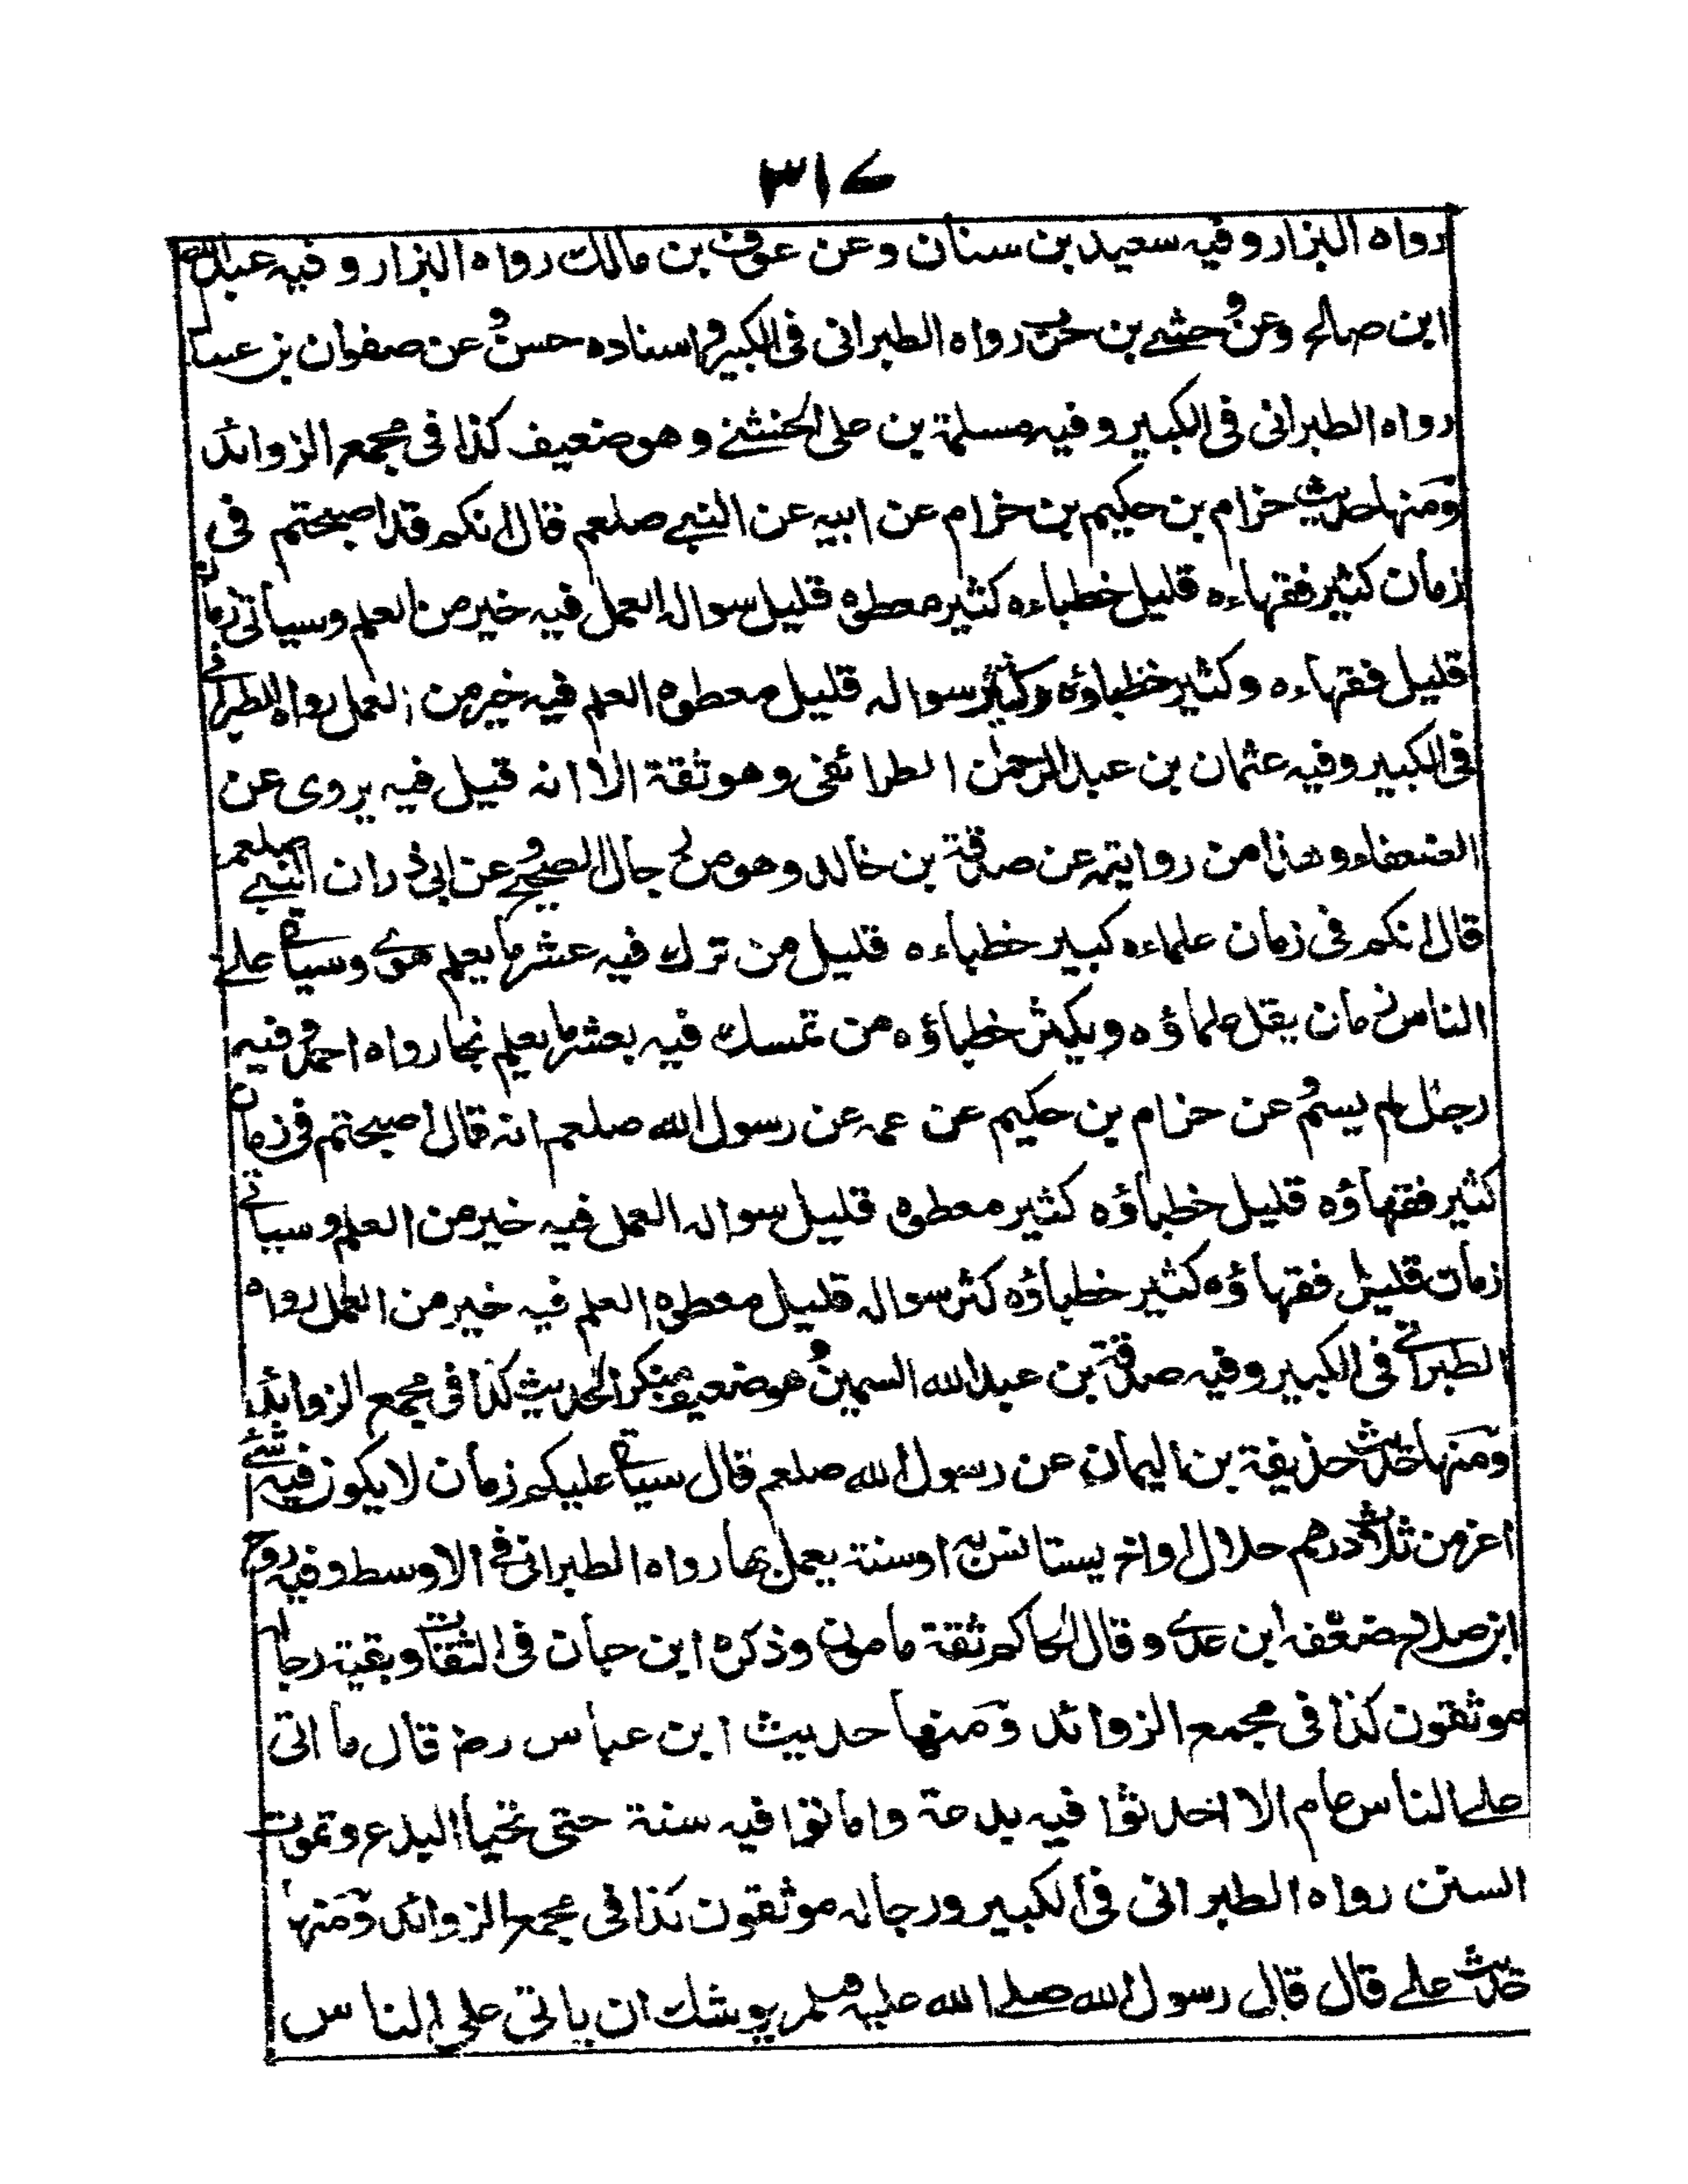 ٣١٧
رواه البزار وفيه سعيد بن سنان وعن عوف بن مالك رواه البزار وفيه عبد الله
ابن صالح وعن وحشے بن حرب رواه الطبرانى فى الكبير واسناده حسن وعن صفوان بن عسال
رواه الطبرانى فى الكبير وفيه مسلمة بن على الخشنے وهو ضعيف كذا فى مجمع الزوائد
ومنها حديث خزام بن حكيم بن خزام عن ابيه عن النبے صلعم قال انكم قد اصبحتم فى
زمان كثير فقهاءه قليل خطباءه كثير معطوه قليل سواله العمل فيه خير من العلم وسياتى زمان
قليل فقهاءه وكثير خطباؤه وكثير سواله قليل معطوه العلم فيه خير من العمل رواه الطبرانے
فى الكبير وفيه عثمان بن عبد الرحمن الطرائفى وهو ثقة الا انه قيل فيه يروى عن
الضعفاء وهذا من روايته عن صدقة بن خالد وهو من رجال الصحيح وعن ابى ذر ان النبے صلعم
قال انكم فى زمان علماءه كبير خطباءه قليل من ترك فيه عشر ما يعلم هوے وسياتى علے
الناس زمان يقل علماؤه ويكثر خطباؤه من تمسك فيه بعشر ما يعلم نجا رواه احمد وفيه
رجل لم يسم وعن حزام بن حكيم عن عمه عن رسول الله صلعم انه قال اصبحتم فى زمان
كثير فقهاؤه قليل خطباؤه كثير معطوه قليل سواله العمل فيه خير من العلم وسياتے
زمان قليل فقهاؤه كثير خطباؤه كثر سواله قليل معطوه العلم فيه خير من العمل رواه
الطبرانے فى الكبير وفيه صدقة بن عبد الله السمين وهو ضعيف منكر الحديث كذا فى مجمع الزوائد
ومنها حديث حذيفة بن اليمان عن رسول الله صلعم قال سياتى عليكم زمان لا يكون فيه شئے
اعز من ثلاث درهم حلال او اخ يستانس به او سنة يعمل بها رواه الطبرانى فے الاوسط وفيه روح
ابن صلاح ضعفه ابن عدے وقال الحاكم ثقة مامون وذكره ابن حبان فى الثقات وبقية رجاله
موثقون كذا فى مجمع الزوائد ومنها حديث ابن عباس رضـ قال ما اتى
علے الناس عام الا احدثوا فيه بدعة واماتوا فيه سنة حتى تحيا البدع وتموت
السنن رواه الطبرانى فى الكبير ورجاله موثقون كذا فى مجمع الزوائد ومنها
حديث علے قال قال رسول الله صلے الله عليه وسلم يوشك ان ياتى على الناس